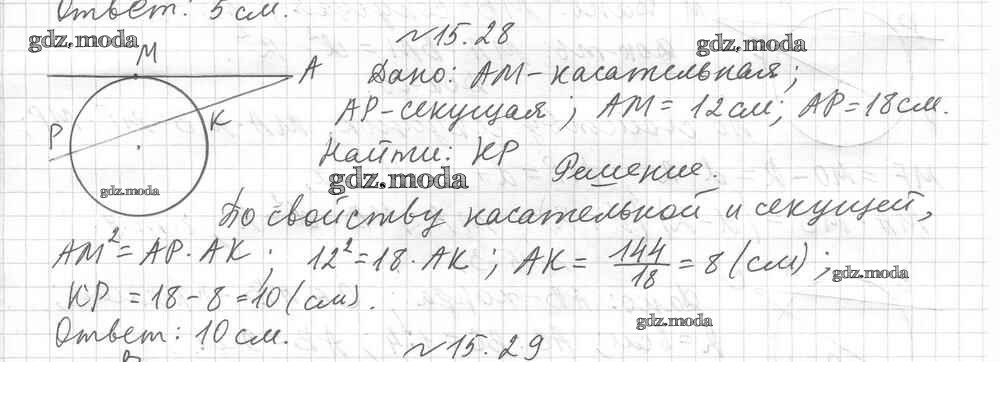 Ответ: 5 см.
№15.28
gdz.moda
gdz.moda
M
A
K
P
Дано: AM - касательная;
AP - секущая; AM = 12 см; AP = 18 см.
Найти: KP
gdz.moda
gdz.moda
Решение.
По свойству касательной и секущей,
AM² = AP · AK; 12² = 18 · AK; AK = 144/18 = 8 (см);
gdz.moda
KP = 18 - 8 = 10 (см).
gdz.moda
Ответ: 10 см.
№15.29